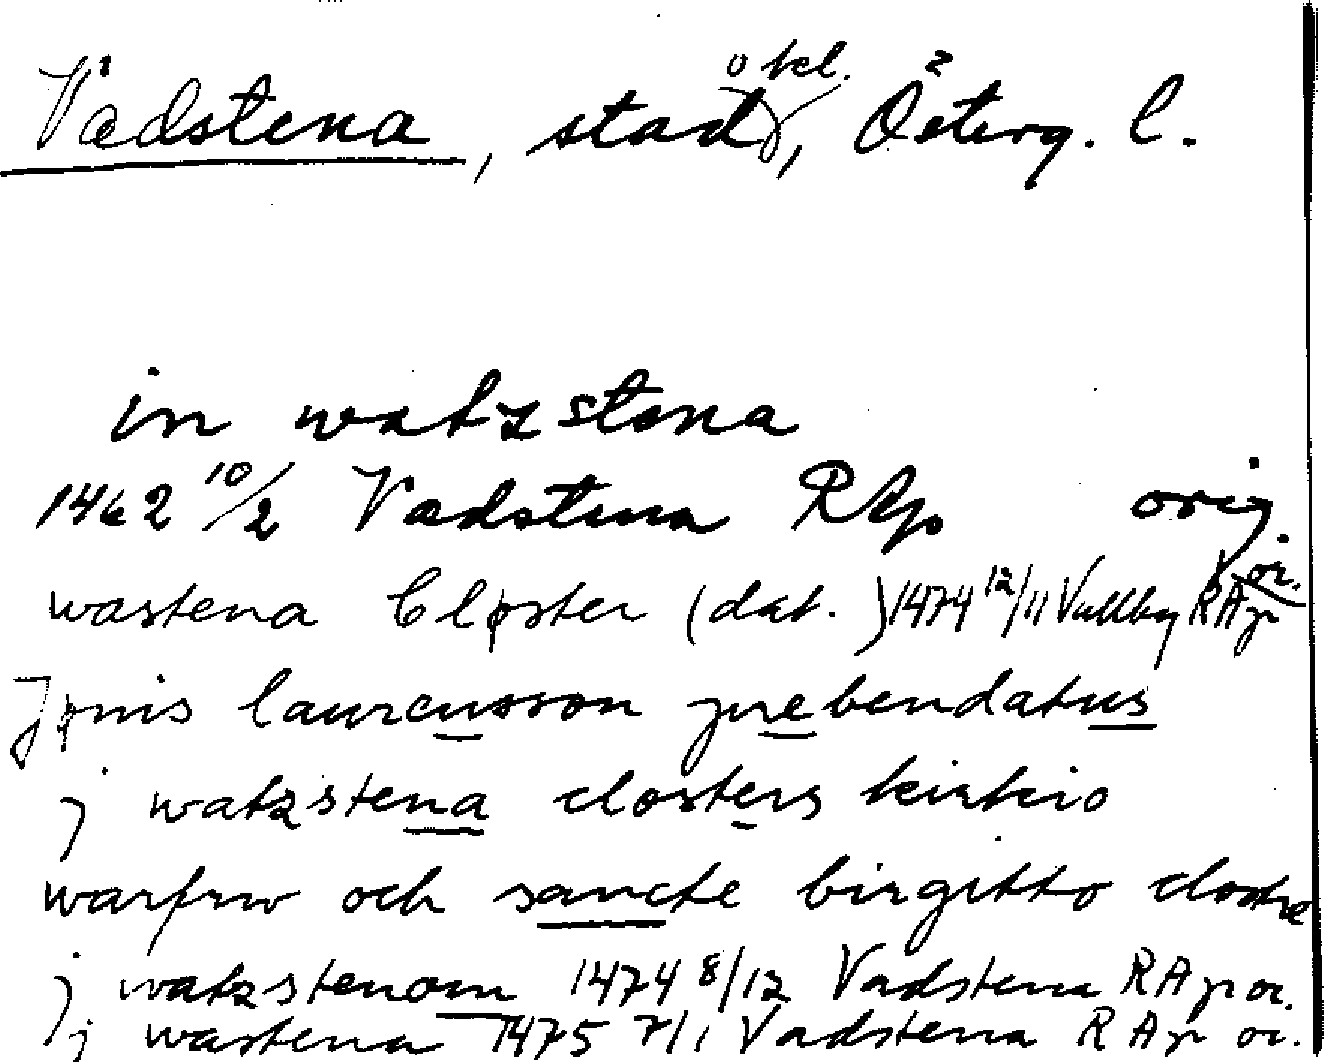 Vadstena, stad, o kl. Österg. l.
in watzstena
1462 10/2 Vadstena RAp orig.
wastena Closter (dat.) 1474 12/11 Vallby RAp or.
Jønis laurensson prebendatus
j watzstena closters kirkio
warfrw och sancte birgitto clostre
j watzstenom 1474 8/12 Vadstena RAp or.
j wastena 1475 7/1 Vadstena RAp or.